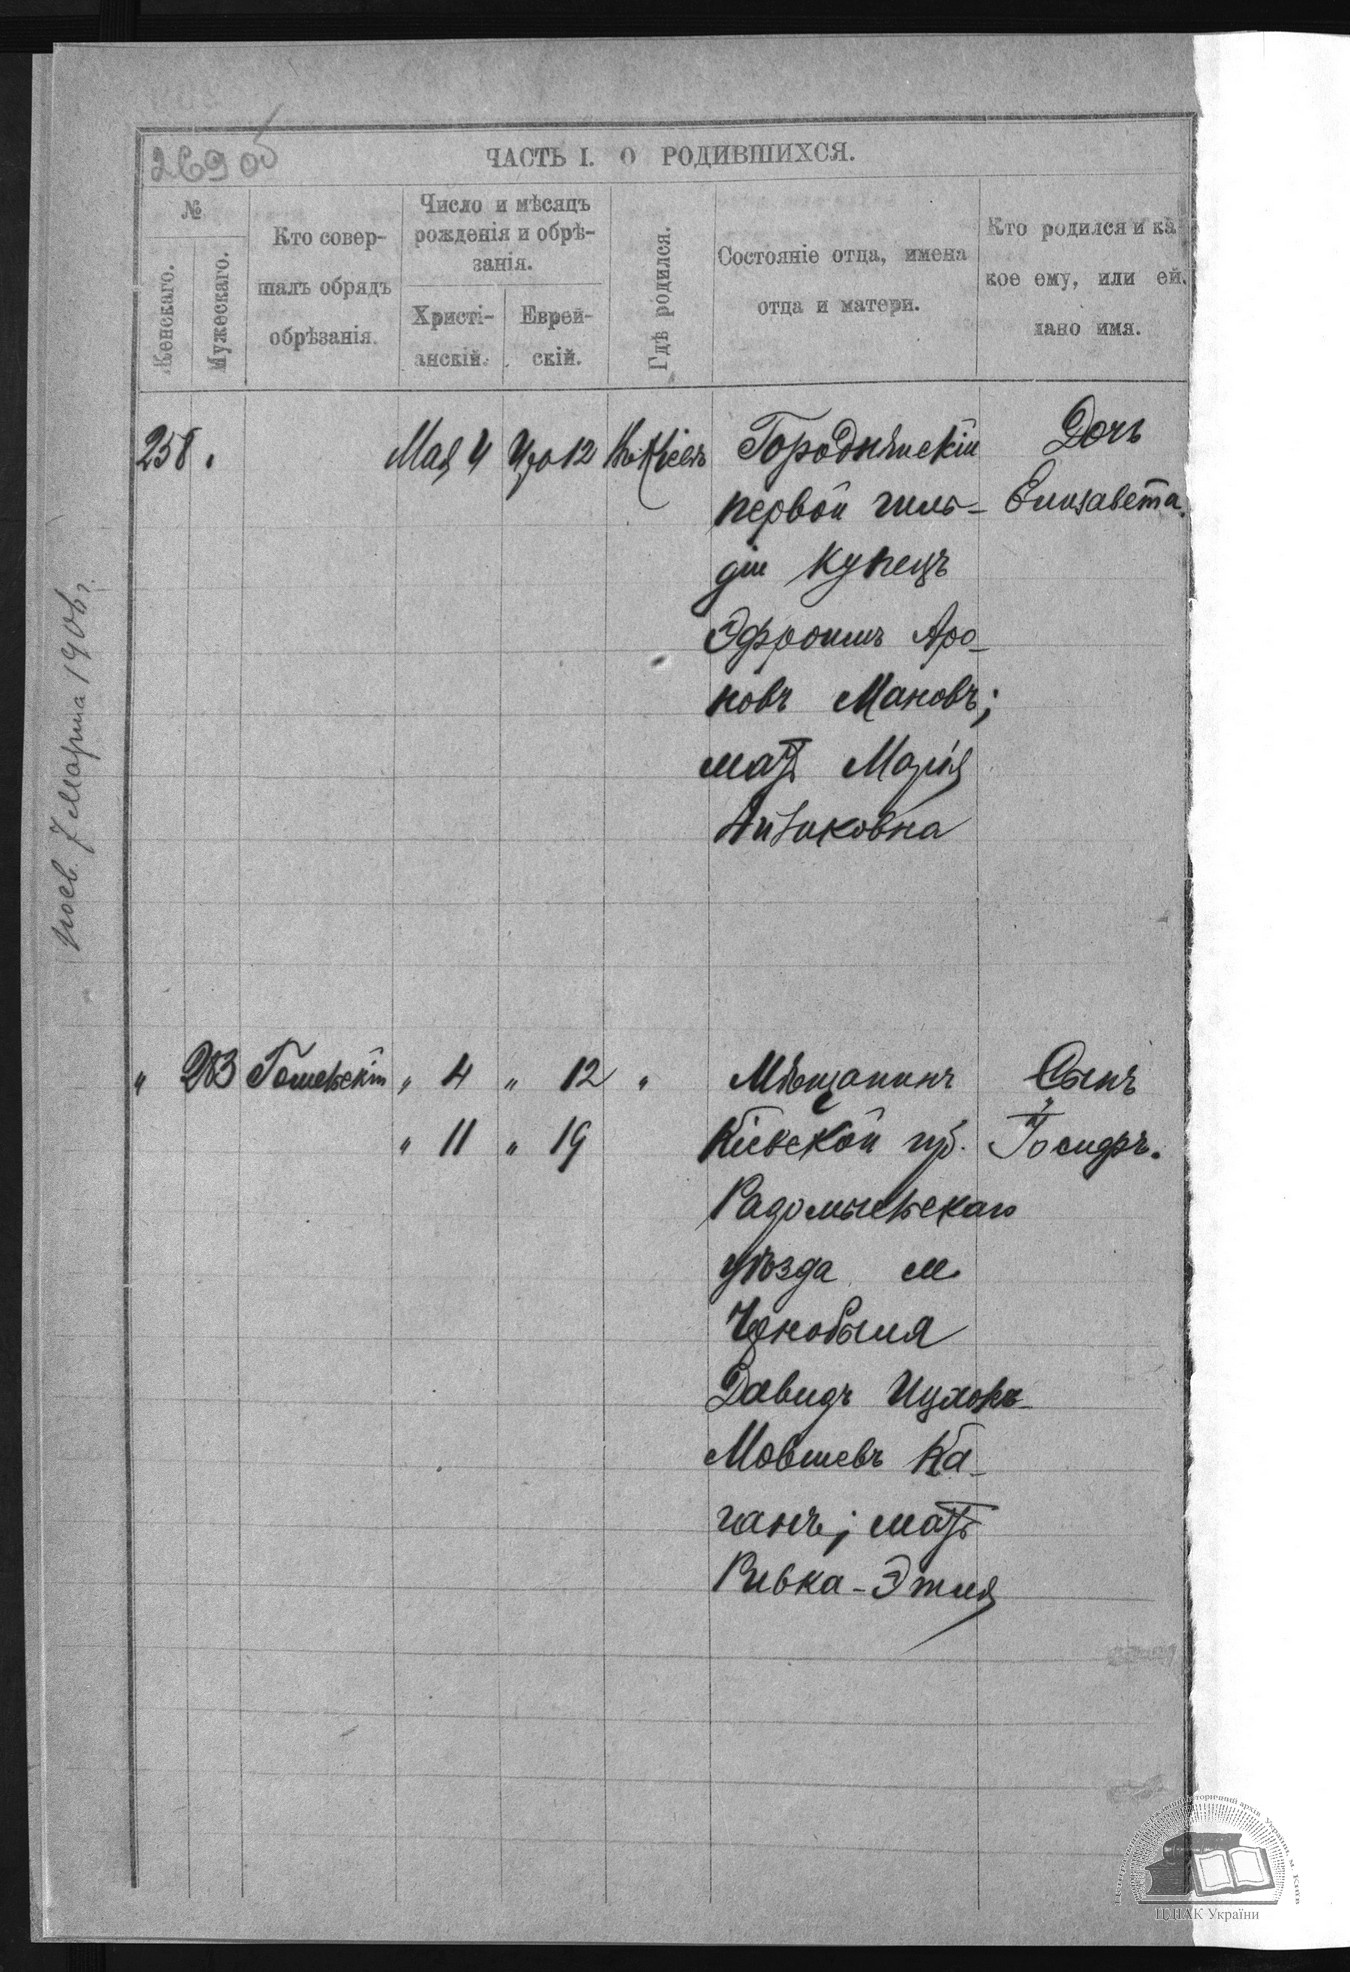 269 об
ЧАСТЬ I. О РОДИВШИХСЯ.
№
Женскаго.
Мужескаго.
Кто совер-
шалъ обрядъ
обрѣзанія.
Число и мѣсяцъ
рожденія и обрѣ-
занія.
Христі-
анскій.
Еврей-
скій.
Гдѣ родился.
Состояніе отца, имена
отца и матери.
Кто родился и ка-
кое ему, или ей.
дано имя.
258. Мая 4 Іро 12 Въ Кіевѣ
Городнянскій
первой гиль-
діи купецъ
Эфроимъ Аро-
новъ Мановъ;
мать Марія
Айзиковна
Дочь
Елизавета.
7 Марта 1906 г.
" 283 Гомельскій " 4 " 12 "
" 11 " 19
Мѣщанинъ
Кіевской губ.
Радомысльскаго
уѣзда м.
Чернобыля
Давидъ Ицхокъ
Мовшевъ Ка-
ганъ; мать
Ривка-Этля
Сынъ
Іосифъ.
ЦДІАК України